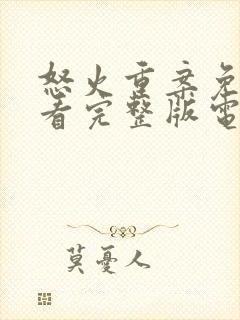 怒火重案免
看完整版電
莫憂人